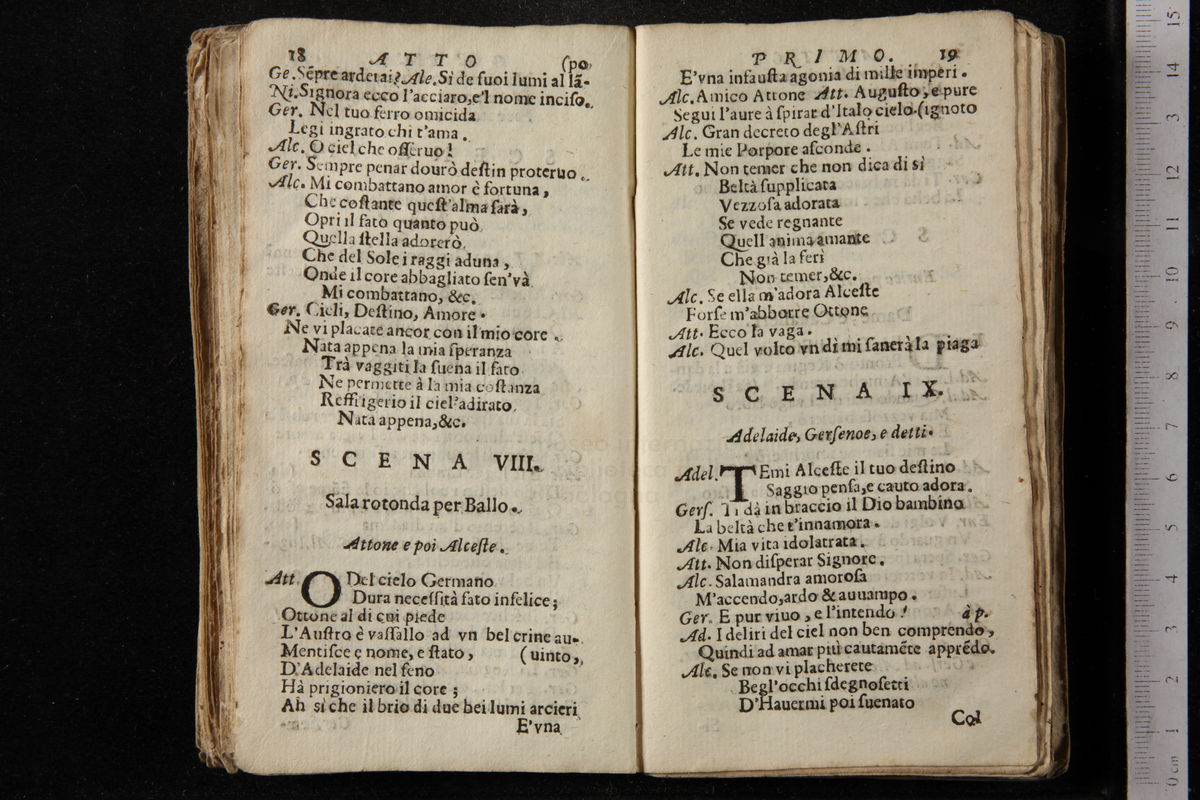 18 ATTO
(po
Ge. Sẽpre arderai? Ale. Sì de suoi lumi al lã-
Ni. Signora ecco l'acciaro, e'l nome inciso.
Ger. Nel tuo ferro omicida
Legi ingrato chi t'ama.
Alc. O ciel che osseruo!
Ger. Sempre penar dourò destin proteruo.
Alc. Mi combattano amor è fortuna,
Che costante quest'alma sarà,
Opri il fato quanto può
Quella stella adorerò,
Che del Sole i raggi aduna,
Onde il core abbagliato sen'và
Mi combattano, &c.
Ger. Cieli, Destino, Amore.
Ne vi placate ancor con il mio core.
Nata appena la mia speranza
Trà vaggiti la suena il fato
Ne permette à la mia costanza
Reffrigerio il ciel'adirato.
Nata appena, &c.
SCENA VIII.
Sala rotonda per Ballo.
Attone e poi Alceste.
Att. O Del cielo Germano
Dura necessità fato infelice;
Ottone al di cui piede
L'Austro è vassallo ad vn bel crine au-
Mentisce e nome, e stato, (uinto,
D'Adelaide nel seno
Hà prigioniero il core;
Ah si che il brio di due bei lumi arcieri
E'vna
PRIMO. 19
E'vna infausta agonia di mille imperi.
Alc. Amico Attone Att. Augusto, e pure
Segui l'aure à spirar d'Italo cielo. (ignoto
Alc. Gran decreto degl'Astri
Le mie Porpore asconde.
Att. Non temer che non dica di sì
Beltà supplicata
Vezzosa adorata
Se vede regnante
Quell anima amante
Che già la ferì
Non temer, &c.
Alc. Se ella m'adora Alceste
Forse m'abborre Ottone
Att. Ecco la vaga.
Alc. Quel volto vn dì mi sanerà la piaga
SCENA IX.
Adelaide, Gersenoe, e detti.
Adel. TEmi Alceste il tuo destino
Saggio pensa, e cauto adora.
Gers. Ti dà in braccio il Dio bambino
La beltà che t'innamora.
Alc. Mia vita idolatrata.
Att. Non disperar Signore.
Alc. Salamandra amorosa
M'accendo, ardo & auuampo.
Ger. E pur viuo, e l'intendo! à p.
Ad. I deliri del ciel non ben comprendo,
Quindi ad amar più cautamẽte apprẽdo.
Alc. Se non vi placherete
Begl'occhi sdegnosetti
D'Hauermi poi suenato
Col